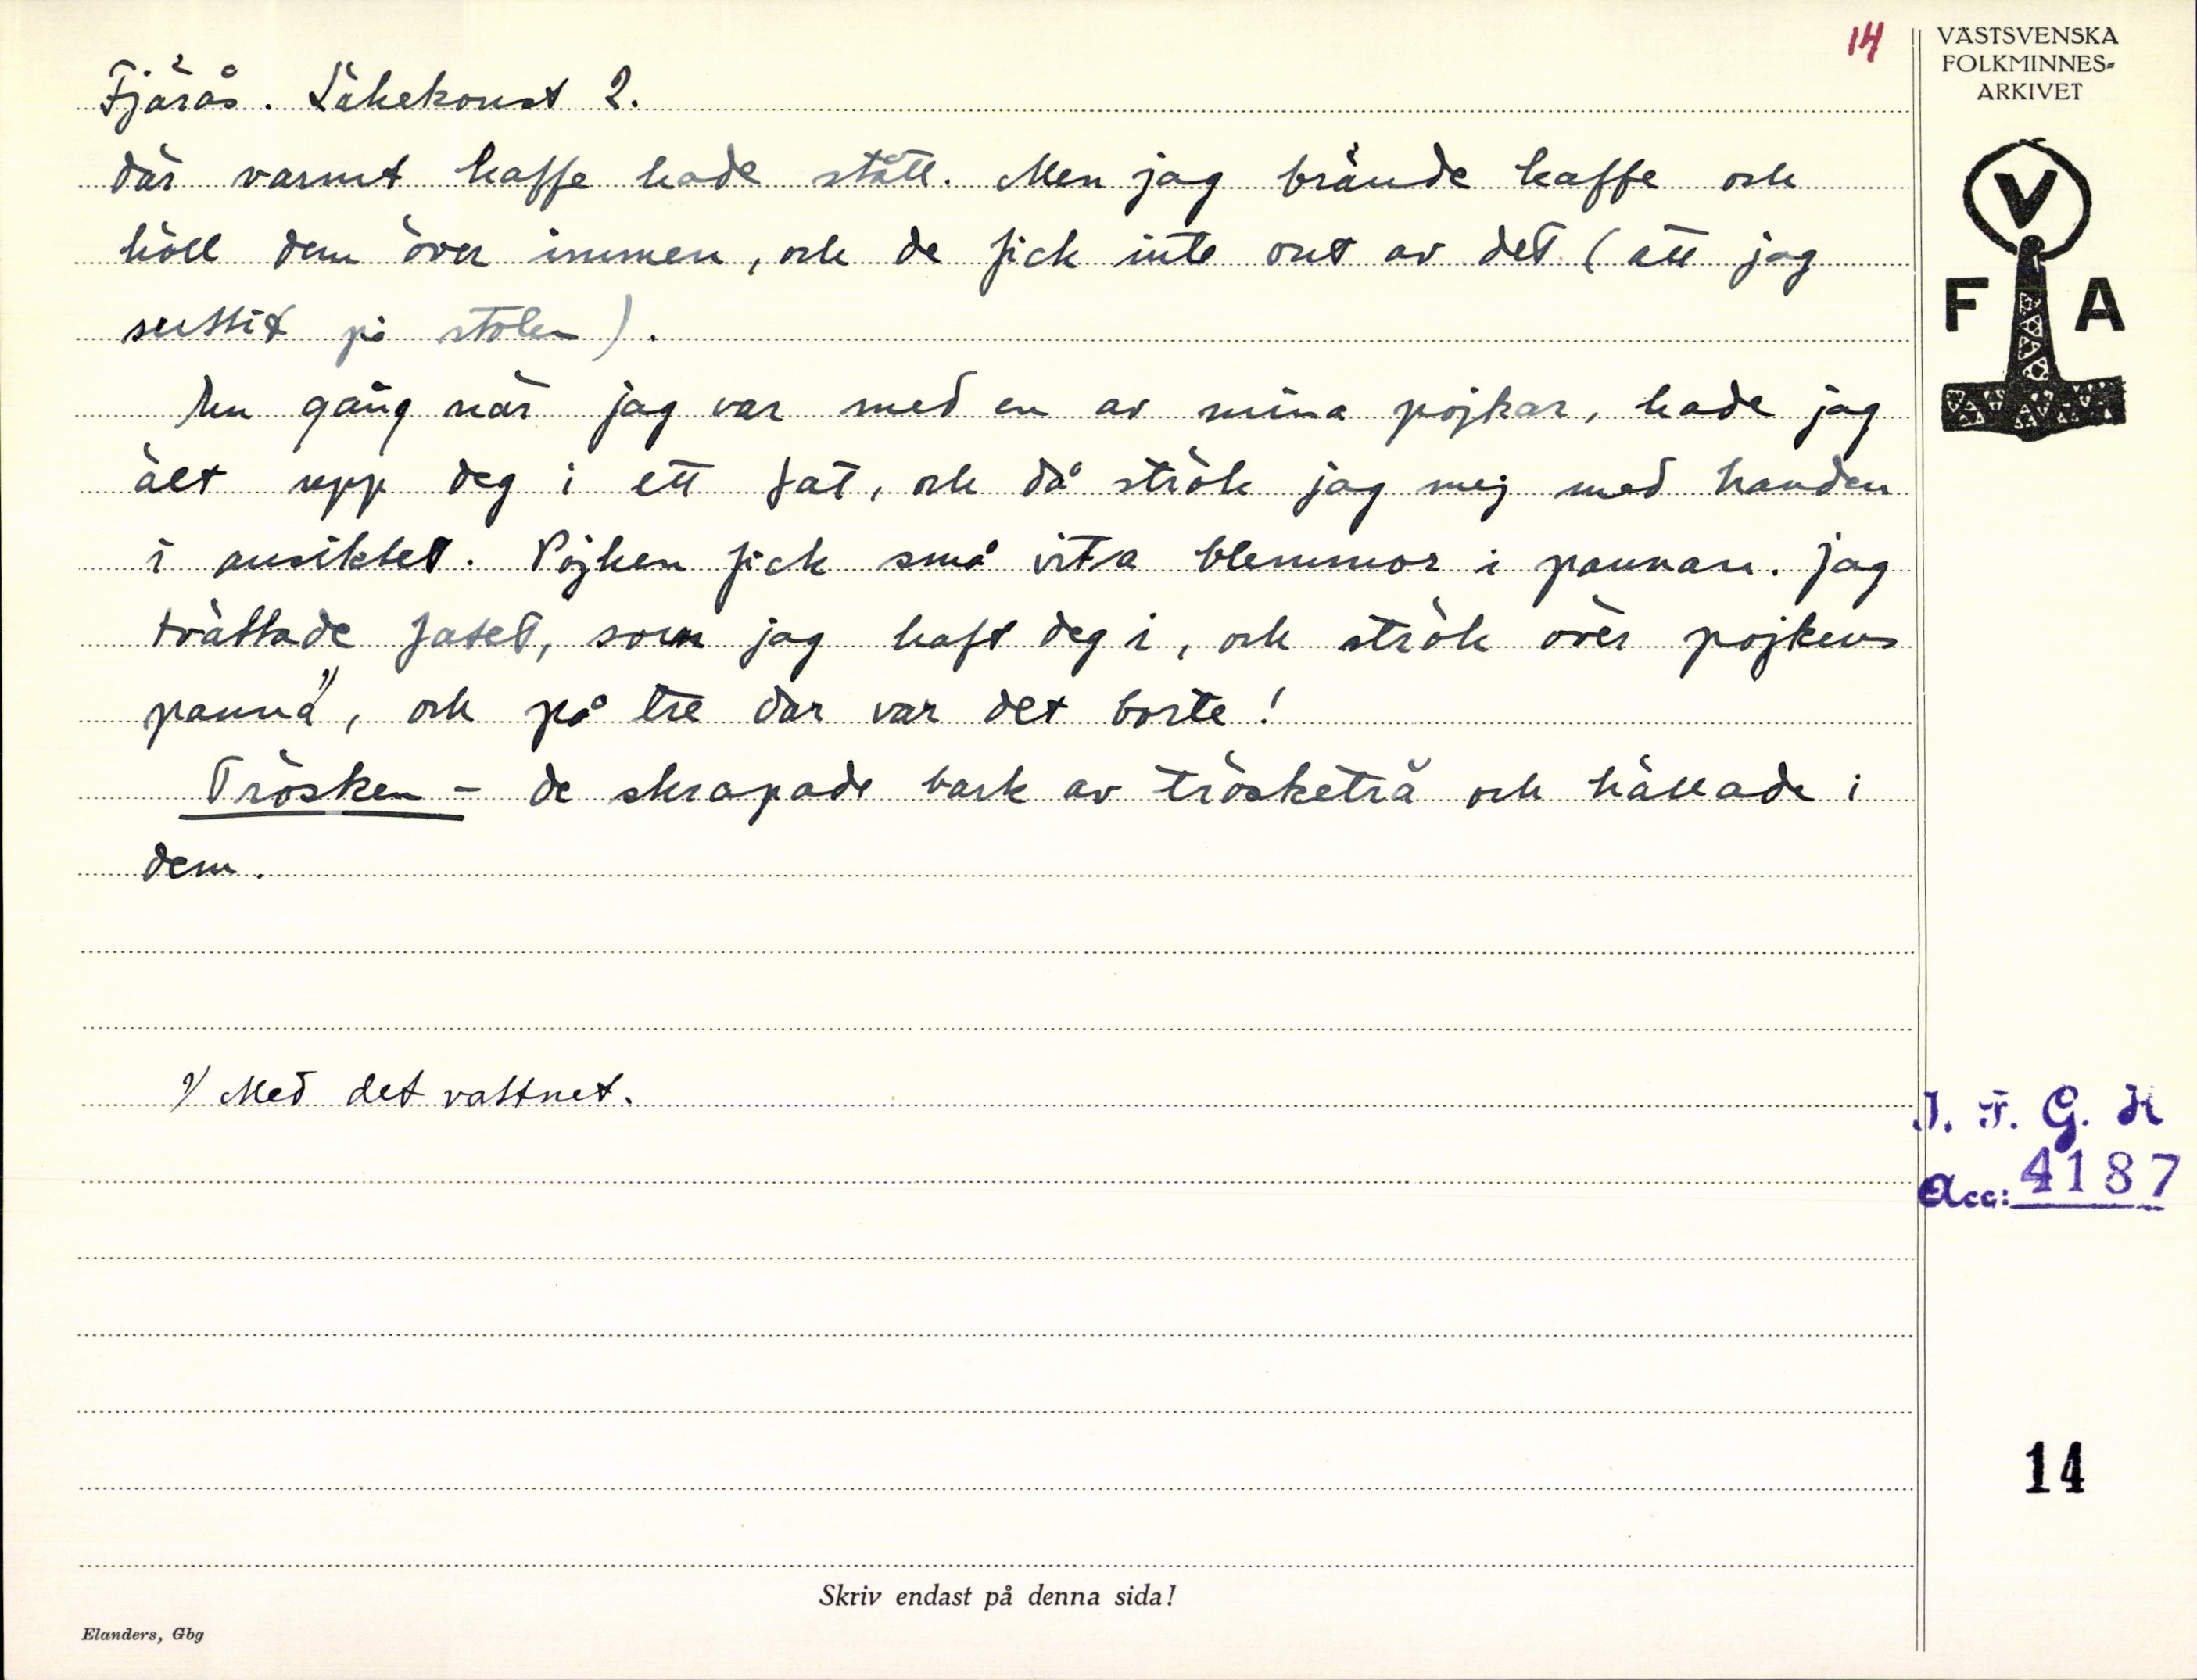 14
VÄSTSVENSKA
FOLKMINNES-
ARKIVET
Fjärås. Läkekonst 2.
där varmt kaffe hade stått. Men jag brände kaffe och
höll dem över immen, och de fick inte ont av det (att jag
suttit på stolen).
En gång när jag var med en av mina pojkar, hade jag
ält upp deg i ett fat, och då strök jag mej med handen
i ansiktet. Pojken fick små vita blemmor i pannan. Jag
tvättade fatet, som jag haft deg i, och strök över pojkens
panna 1), och på tre dar var det borte!
Trösken - de skrapade bark av trösketrä och hällade i
dem.
1) Med det vattnet.
V
F A
I. F. G. H
Acc: 4187
14
Skriv endast på denna sida!
Elanders, Gbg